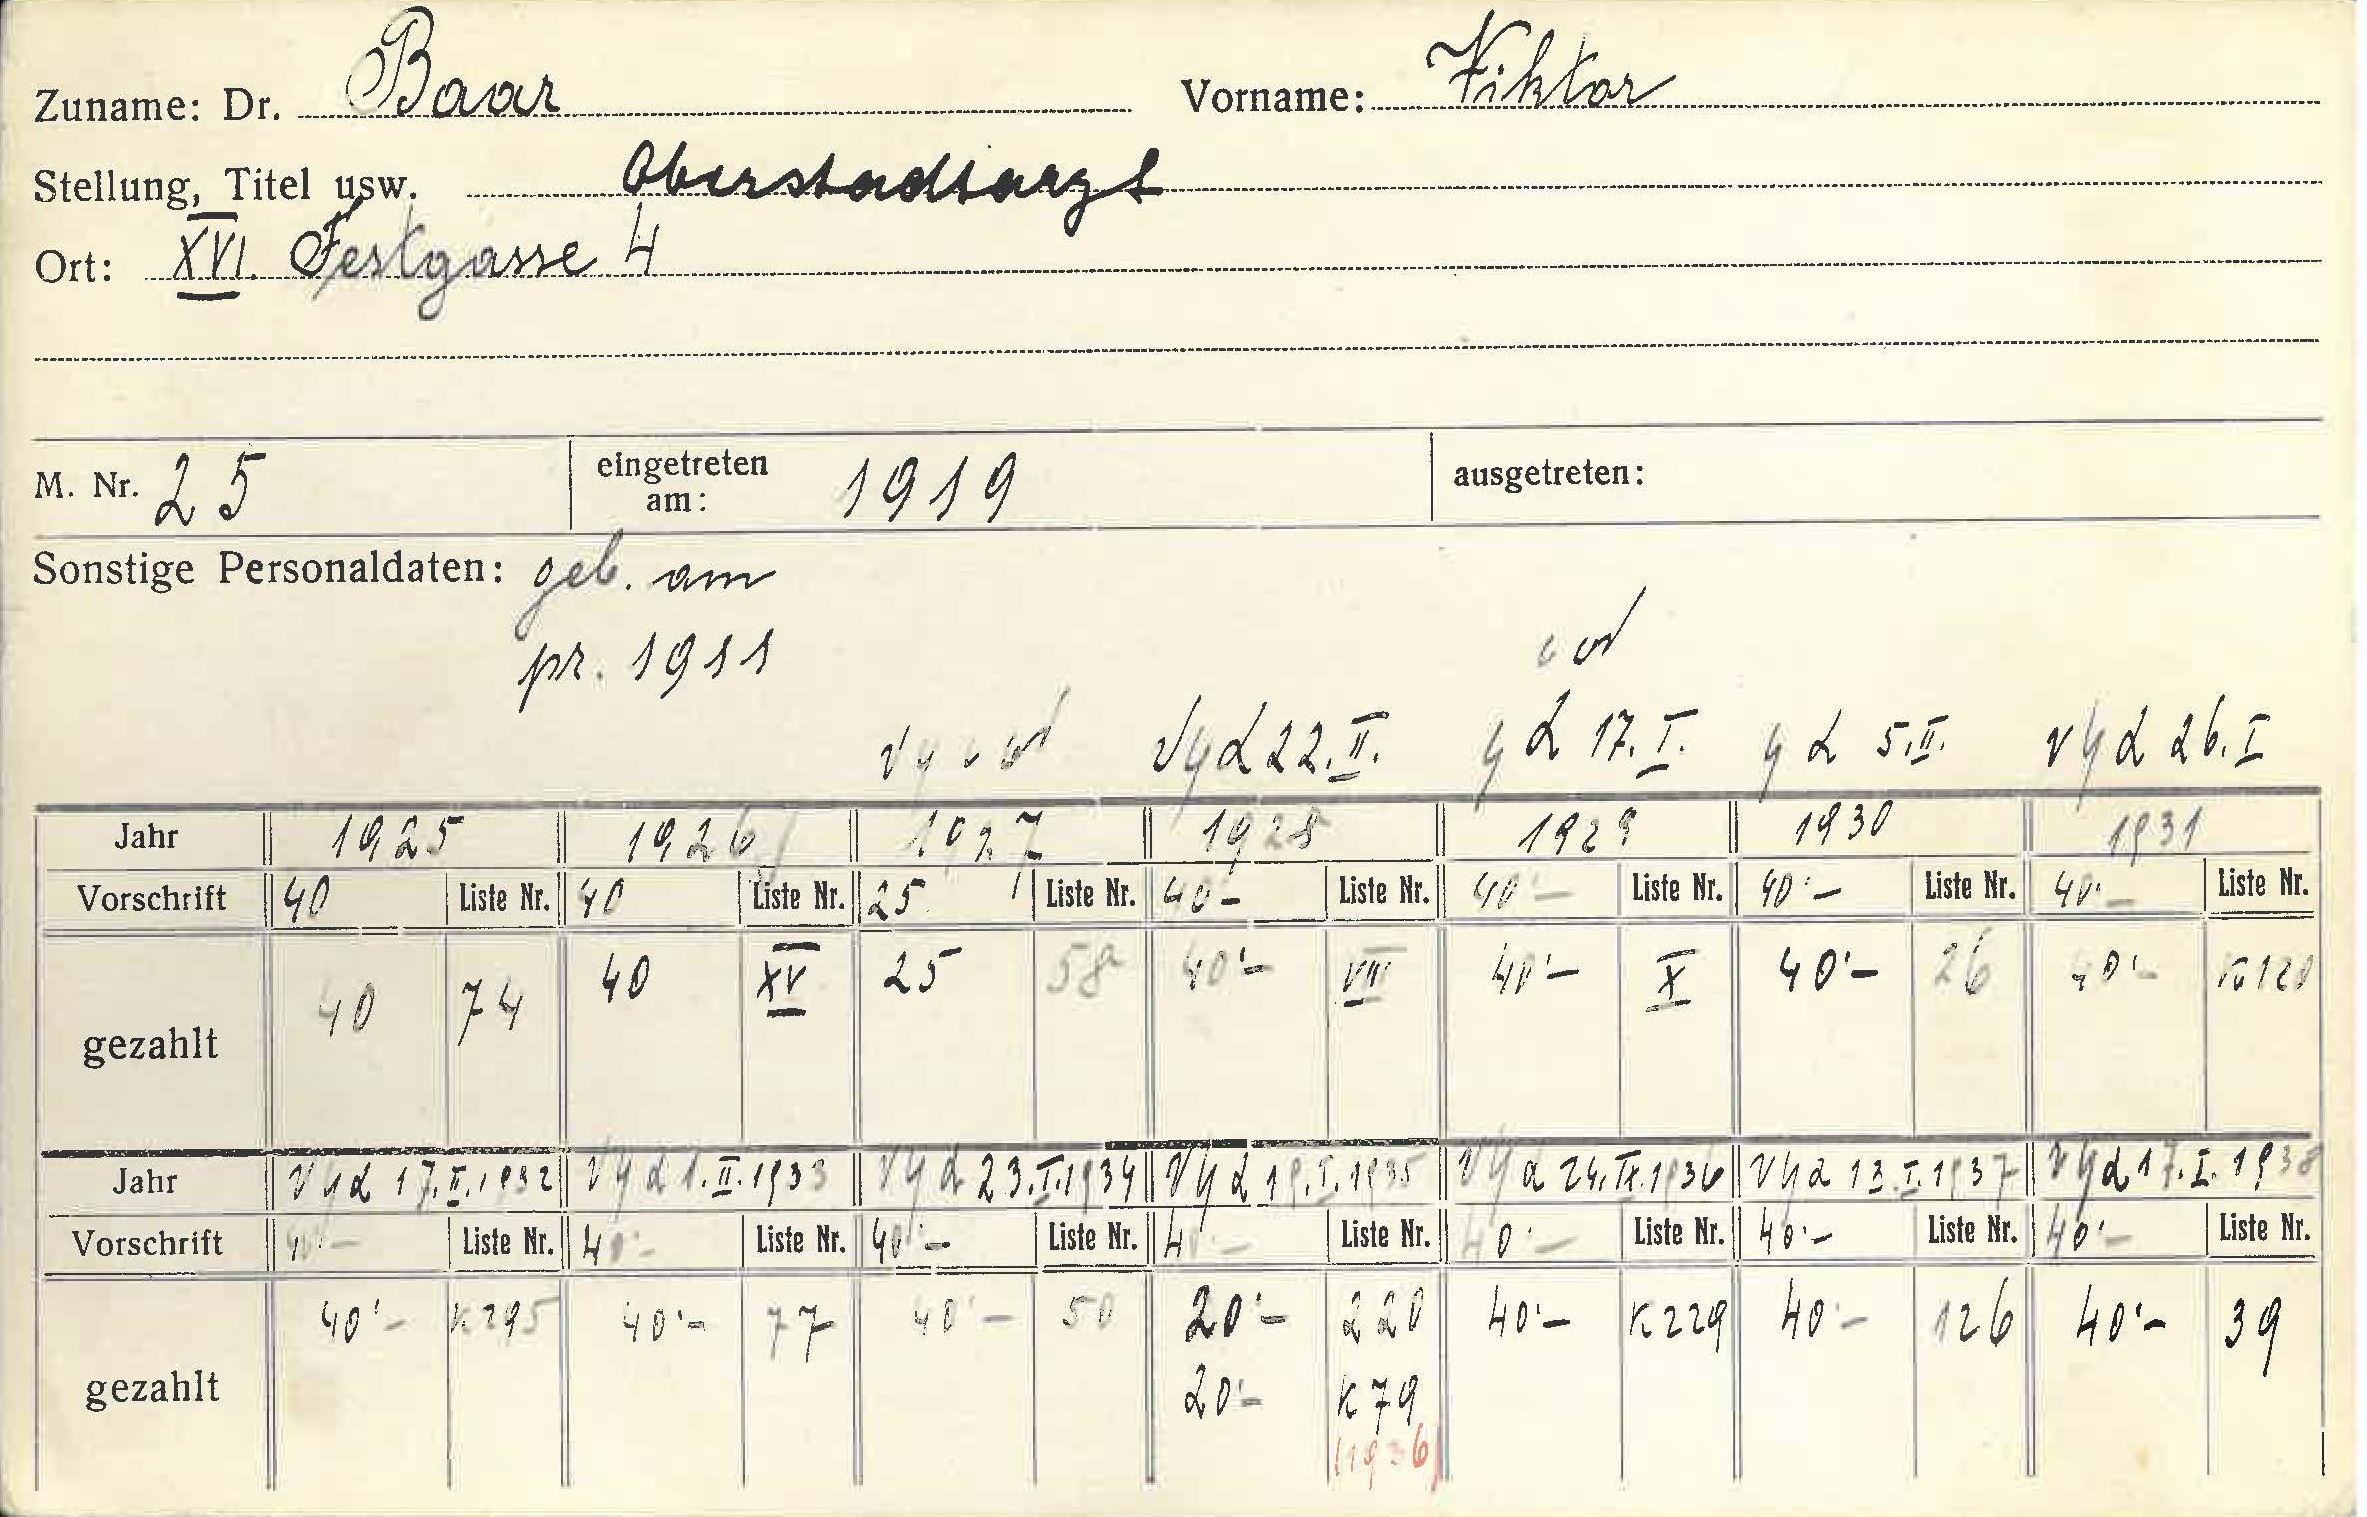 Zuname: Dr. Baar Vorname: Viktor
Stellung, Titel usw. Oberstadtarzt
Ort: XVI. Festgasse 4
M. Nr. 25 eingetreten am: 1919 ausgetreten:
Sonstige Personaldaten: geb. am
pr. 1911
22.II. 17.I. 5.II. 26.I
Jahr 1925 1926 1927 1928 1929 1930 1931
Vorschrift 40 Liste Nr. 40 Liste Nr. 25 Liste Nr. 40 – Liste Nr. 40'– Liste Nr. 40'– Liste Nr. 40'– Liste Nr.
gezahlt 40 74 40 XV 25 58 40'– VII 40'– X 40'– 26 40'– K120
Jahr 17.II.1932 1.II.1933 23.I.1934 19.I.1935 24.II.1936 13.I.1937 17.I.1938
Vorschrift 40'– Liste Nr. 40'– Liste Nr. 40'– Liste Nr. 40'– Liste Nr. 40'– Liste Nr. 40'– Liste Nr. 40'– Liste Nr.
gezahlt 40'– K295 40'– 77 40'– 50 20'– 220 40'– K229 40'– 126 40'– 39
20'– K79
(1936)